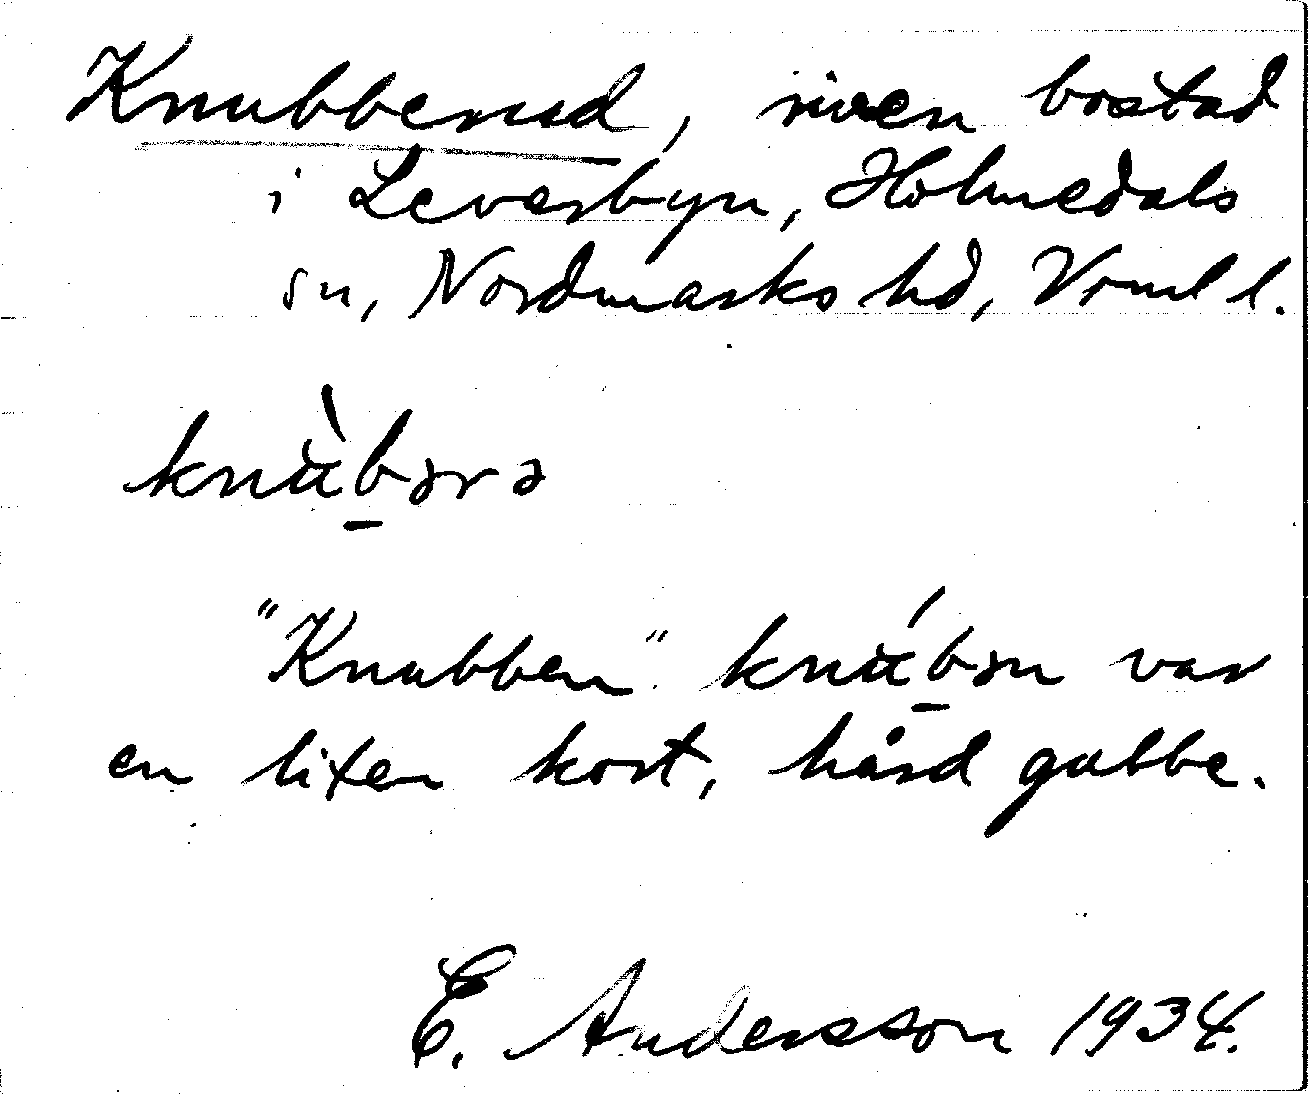 Knubberud, riven bostad
i Leverbyn, Holmedals
sn, Nordmarks hd, Vrml l.
knùb̲ərə
"Knubben" knúb̲ən var
en liten kort, hård gubbe.
E. Andersson 1934.